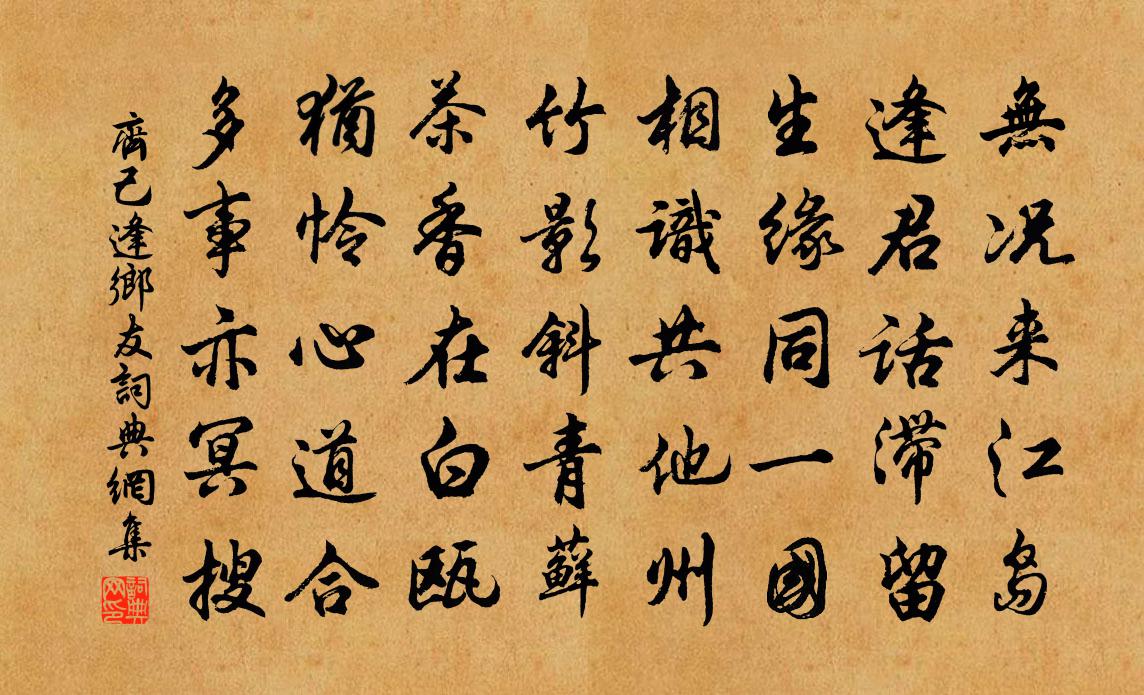 無况来江島
逢君話滯留
生緣同一國
相識共他州
竹影斜青蘚
茶香在白甌
猶怜心道合
多事亦冥搜
齊己逢鄉友詞典網集
詞典网印